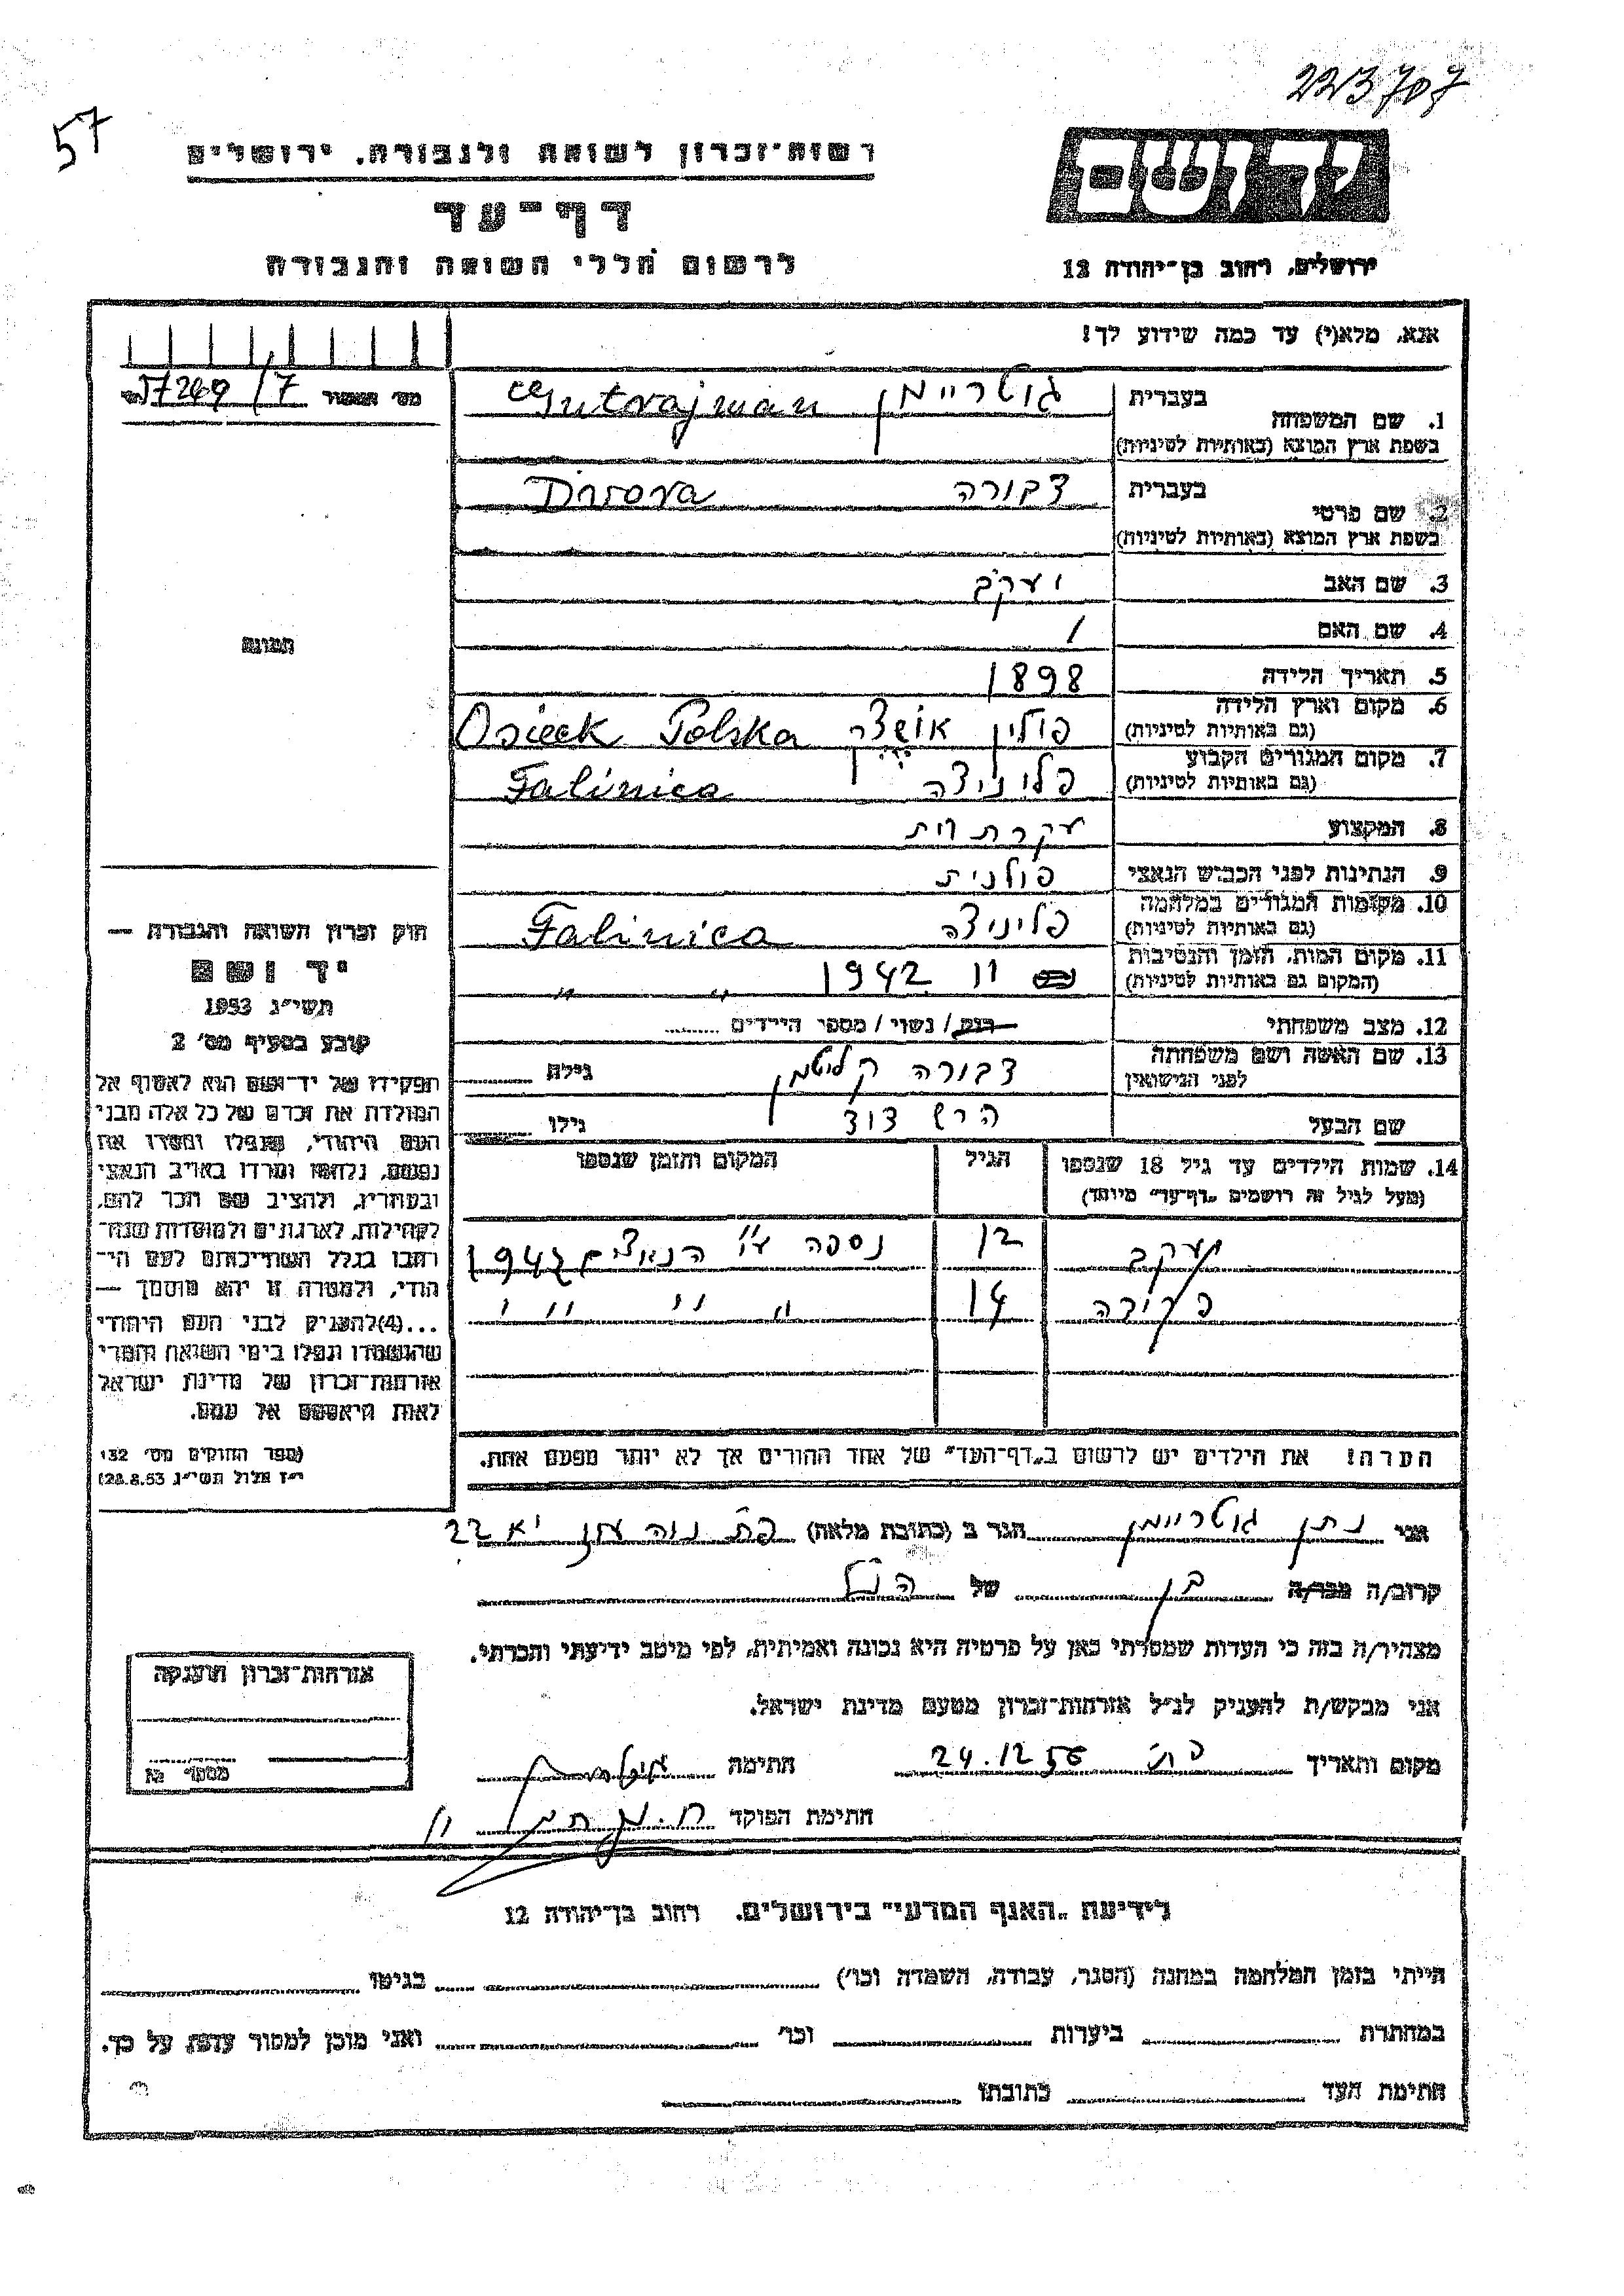 223707
57
רשות-זכרון לשואה ולגבורה, ירושלים
יד ושם
דף-עד
לרשום חללי השואה והגבורה
ירושלים, רחוב בן-יהודה 12
אנא, מלא(י) עד כמה שידוע לך!
מס'
57269/7
1. שם המשפחה
בעברית
גוטריימן Gutrajman
בשפת ארץ המוצא (באותיות לטיניות)
2. שם פרטי
בעברית
דבורה Dwora
בשפת ארץ המוצא (באותיות לטיניות)
3. שם האב
יעקב
4. שם האם
/
5. תאריך הלידה
1898
6. מקום וארץ הלידה
(גם באותיות לטיניות)
פולין Osieck Polska
7. מקום המגורים הקבוע
(גם באותיות לטיניות)
פליניצה Falinica
8. המקצוע
עקרת בית
9. הנתינות לפני הכבוש הנאצי
פולנית
10. מקומות המגורים במלחמה
(גם באותיות לטיניות)
פליניצה Falinica
11. מקום המות, הזמן והנסיבות
(המקום גם באותיות לטיניות)
1942 " "
12. מצב משפחתי
רווק / נשוי / מספר הילדים
13. שם האשה ושם משפחתה
לפני הנישואין
דבורה
גילה
שם הבעל
הרש דוד
גילו
14. שמות הילדים עד גיל 18 שנספו
(מעל לגיל זה רושמים "דף-עד" מיוחד)
הגיל
המקום והזמן שנספו
יעקב
נספה ע"י הנאצים 1942
פרידה 14 " " " "
הערה! את הילדים יש לרשום ב"דף-העד" של אחד ההורים אך לא יותר מפעם אחת.
תמונה
חוק זכרון השואה והגבורה —
יד ושם
תשי"ג 1953
קובע בסעיף מס' 2
תפקידו של יד-ושם הוא לאסוף אל
המולדת את זכרם של כל אלה מבני
העם היהודי, שנפלו ומסרו את
נפשם, נלחמו ומרדו באויב הנאצי
ובעוזריו, ולהציב שם וזכר להם,
לקהילות, לארגונים ולמוסדות שנח-
רבו בגלל השתייכותם לעם הי-
הודי, ולמטרה זו יהא מוסמך —
...(4) להעניק לבני העם היהודי
שהושמדו ונפלו בימי השואה והמרי
אזרחות-זכרון של מדינת ישראל
לאות היאספם אל עמם.
(ספר החוקים מס' 132
י"ז אלול תשי"ג 28.8.53)
אני נתן גוטריימן הגר ב (כתובת מלאה) פת נוה עוז יא 22
קרוב/ה מכר/ה בן של הנ"ל
מצהיר/ה בזה כי העדות שמסרתי כאן על פרטיה היא נכונה ואמיתית, לפי מיטב ידיעתי והכרתי.
אני מבקש/ת להעניק לנ"ל אזרחות-זכרון מטעם מדינת ישראל.
מקום ותאריך פת 24.12.56 חתימה
חתימת הפוקד
אזרחות-זכרון הוענקה
מספר
לידיעת "האגף המדעי" בירושלים, רחוב בן-יהודה 12
הייתי בזמן המלחמה במחנה (הסגר, עבודה, השמדה וכו') בגיטו
במחתרת ביערות וכו' ואני מוכן למסור עדות על כך.
חתימת העד כתובתו